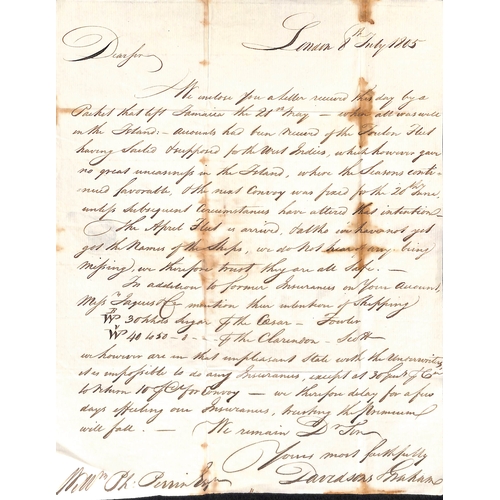 London 8th July 1805
Dear Sir
We enclose you a letter received this day by a
Packet that left Jamaica the 21st May – when all was well
in the Island – Accounts had been received of the Toulon Fleet
having Sailed & supposed for the West Indies, which however gave
no great uneasiness in the Island, where the Seasons conti-
nued favorable, & the next Convoy was fixed for the 20th June,
unless subsequent Circumstances have altered this intention
The April Fleet is arrived, & altho we have not yet
got the Names of the Ships, we do not hear of any being
Missing, we therefore trust they are all Safe. –
In addition to former Insurances on Your Account,
Messrs Jaques & Co mention their intention of Shipping
WP 30 hhds Sugar the Cæsar – Fowler
WP 40 to 50 - - - the Clarendon – Scott
we however are in that unpleasant State with the Underwriters
it is impossible to do any Insurances, except at 20 Gns Ct
to return 10 Ct for Convoy – we therefore delay for a few
days effecting our Insurances, trusting the Premium
will fall. – We remain Dr Sir
Yours most faithfully
Davidsons Graham
Wm Ph. Perrin Esqr